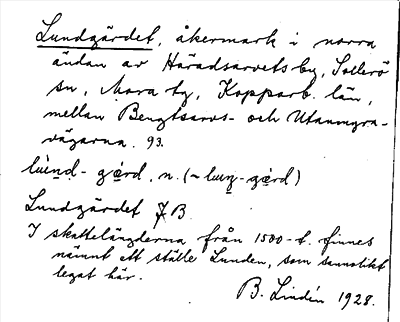 Lundgärdet, åkermark i norra
ändan av Häradsarvets by, Sollerö
sn, Mora tg, Kopparb. län,
mellan Bengtsarvs- och Utanmyra-
vägarna. 93.
n. (~
Lundgärdet JB.
I skattelängderna från 1500-t. finnes
nämnt ett ställe Lunden, som sannolikt
legat här.
B. Lindén 1928.